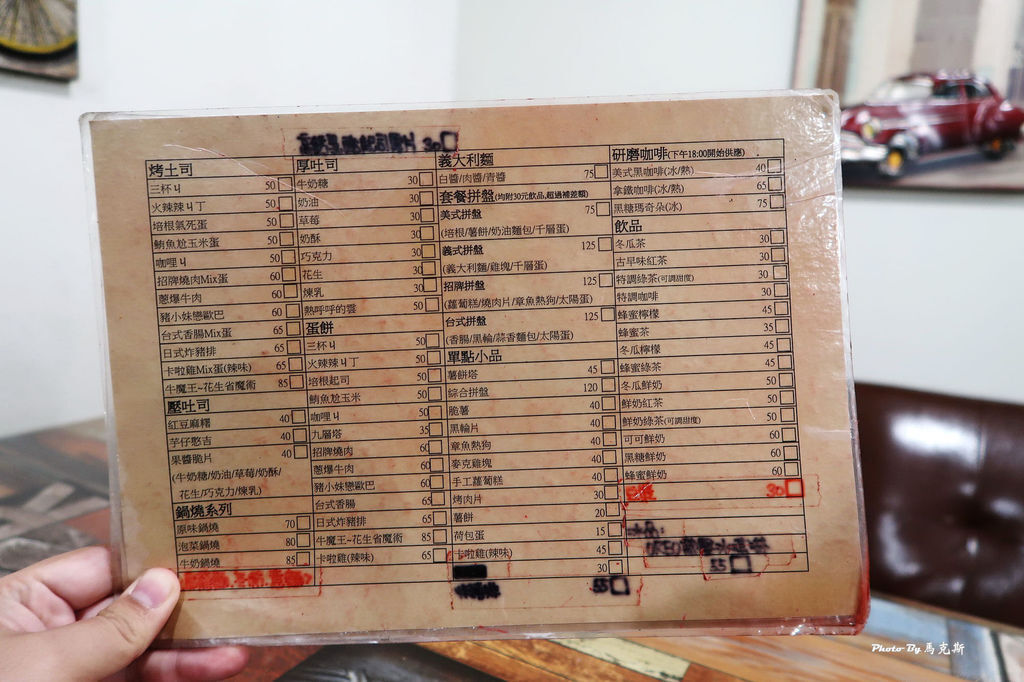 烤土司
三杯ㄐ 50
火辣辣ㄐ丁 50
培根氣死蛋 50
鮪魚尬玉米蛋 50
咖哩ㄐ 50
招牌燒肉Mix蛋 60
蔥爆牛肉 60
豬小妹戀歐巴 60
台式香腸Mix蛋 65
日式炸豬排 65
卡啦雞Mix蛋(辣味) 65
牛魔王~花生省魔術 85
壓吐司
紅豆麻糬 40
芋仔憨吉 40
果醬脆片 40
(牛奶糖/奶油/草莓/奶酥/
花生/巧克力/煉乳)
鍋燒系列
原味鍋燒 70
泡菜鍋燒 80
牛奶鍋燒 85
厚吐司
牛奶糖 30
奶油 30
草莓 30
奶酥 30
巧克力 30
花生 30
煉乳 30
熱呼呼的雲 50
蛋餅
三杯ㄐ 50
火辣辣ㄐ丁 50
培根起司 50
鮪魚尬玉米 50
咖哩ㄐ 50
九層塔 35
招牌燒肉 60
蔥爆牛肉 60
豬小妹戀歐巴 60
台式香腸 65
日式炸豬排 65
牛魔王~花生省魔術 85
卡啦雞(辣味) 65
義大利麵
白醬/肉醬/青醬 75
套餐拼盤(均附30元飲品,超過補差額)
美式拼盤 75
(培根/薯餅/奶油麵包/千層蛋)
義式拼盤 125
(義大利麵/雞塊/千層蛋)
招牌拼盤 125
(蘿蔔糕/燒肉片/章魚熱狗/太陽蛋)
台式拼盤 125
(香腸/黑輪/蒜香麵包/太陽蛋)
單點小品
薯餅塔 45
綜合拼盤 120
脆薯 40
黑輪片 40
章魚熱狗 40
麥克雞塊 40
手工蘿蔔糕 40
烤肉片 30
薯餅 20
荷包蛋 15
卡啦雞(辣味) 45
30
55
研磨咖啡(下午18:00開始供應)
美式黑咖啡(冰/熱) 40
拿鐵咖啡(冰/熱) 65
黑糖瑪奇朵(冰) 75
飲品
冬瓜茶 30
古早味紅茶 30
特調綠茶(可調甜度) 30
特調咖啡 30
蜂蜜檸檬 45
蜂蜜茶 35
冬瓜檸檬 45
蜂蜜綠茶 45
冬瓜鮮奶 50
鮮奶紅茶 50
鮮奶綠茶(可調甜度) 50
可可鮮奶 60
黑糖鮮奶 60
蜂蜜鮮奶 60
30
55
Photo By 馬克斯